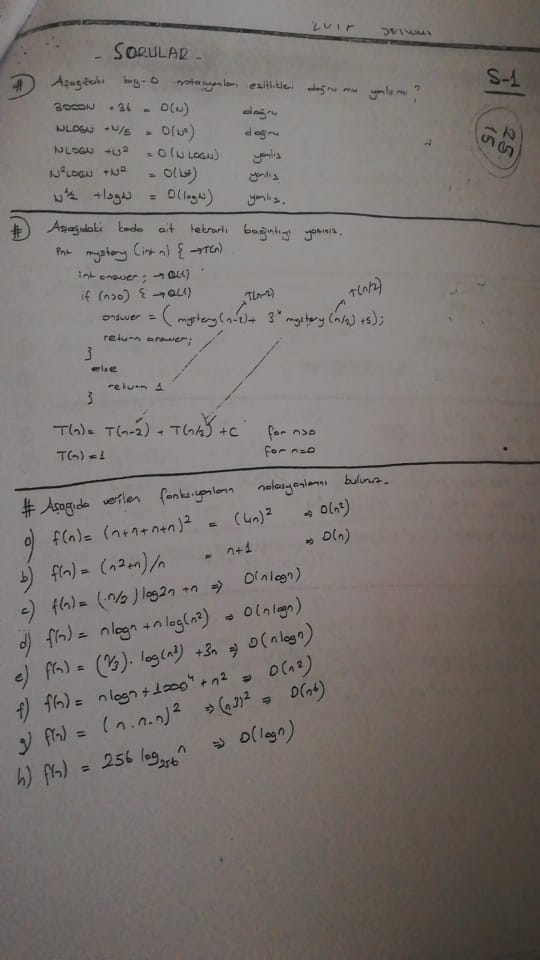 - SORULAR -
S-1
# Aşağıdaki big-O notasyonları eşitlikleri doğru mu yanlış mı?
25
15
3000N + 36 = O(N) doğru
NLOGN + N/5 = O(N²) doğru
NLOGN + N² = O(N LOGN) yanlış
N²LOGN + N² = yanlış
N^1/2 + logN = O(logN) yanlış.
# Aşağıdaki koda ait tekrarlı bağıntıyı yazınız.
int mystery (int n) { → T(n)
int answer; → O(1)
if (n>0) { → O(1) T(n-2) T(n/2)
answer = ( mystery(n-2) + 3* mystery (n/2) +5);
return answer;
}
else
return 1
}
T(n) = T(n-2) + T(n/2) + C for n>0
T(n) = 1 for n=0
# Aşağıda verilen fonksiyonların notasyonlarını bulunuz.
a) f(n) = (n+n+n+n)² = (4n)² ⇒ O(n²)
b) f(n) = (n²+n)/n = n+1 ⇒ O(n)
c) f(n) = (n/2) log2n + n ⇒ O(nlogn)
d) f(n) = nlogn + nlog(n²) ⇒ O(nlogn)
e) f(n) = (n/3). log(n³) + 3n ⇒ O(nlogn)
f) f(n) = nlogn + 1000⁴ + n² ⇒ O(n²)
g) f(n) = (n.n.n)² ⇒ (n3)² ⇒ O(n⁶)
h) f(n) = 256 log₂₅₆ⁿ ⇒ O(logn)